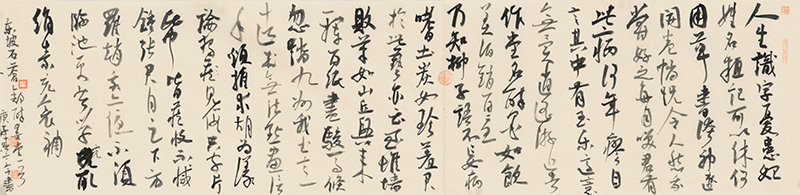 人生識字憂患始
姓名粗記可以休何
用草書誇神速
開卷惝怳令人愁我
嘗好之每自笑君有
此病何年瘳自
言其中有至樂適意
無異逍遙遊近者
作堂名醉墨如飲
美酒銷百憂
乃知柳子語不妄病
嗜土炭如珍羞君
於此藝亦云至堆牆
敗筆如山丘興來
一揮百紙盡駿馬倏
忽踏九州我書意
造本無法點畫信
手煩推求胡為議
論獨見假隻字片
紙皆藏收不減
鍾張君自足下方
羅趙我亦優不須
臨池更苦學完取
絹素充衾裯
東坡石蒼舒醉墨堂
庚子書